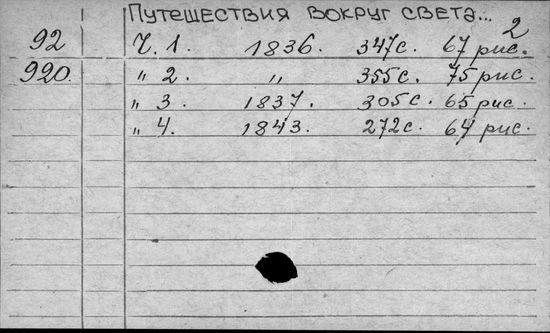 Путешествия вокруг света...
2
92 Ч. 1. 1836. 347с. 67 рис.
920. " 2. " 355с. 75 рис.
" 3. 1837. 305с. 65 рис.
" 4. 1843. 272с. 64 рис.